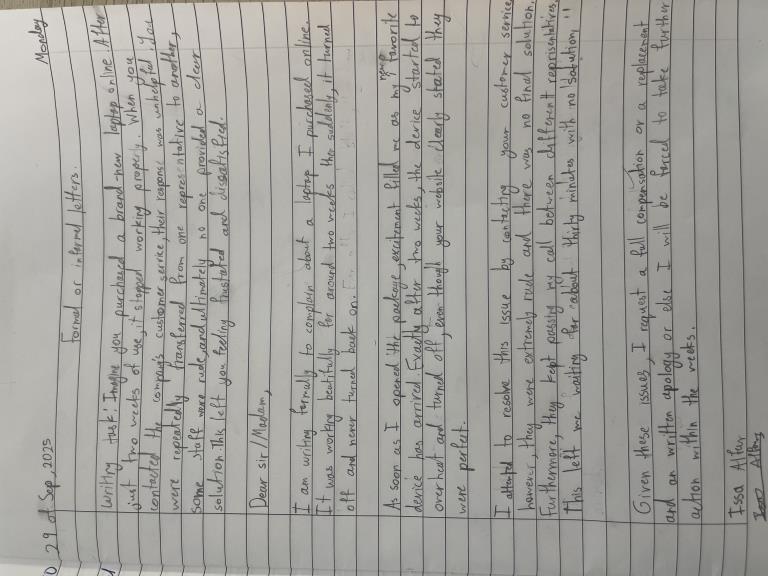 29 of Sep, 2025 Monday
formal or informal letters.
Writing task: Imagine you purchased a brand-new laptop online. After
just two weeks of use, it stopped working properly. When you
contacted the company's customer service, their response was unhelpful. You
were repeatedly transferred from one representative to another,
some staff were rude, and ultimately no one provided a clear
solution. This left you feeling frustated and dissatisfied.
Dear sir/Madam,
I am writing formally to complain about a laptop I purchased online.
It was working beatifully for around two weeks then suddenly, it turned
off and never turned back on.
As soon as I opened the package, excitement filled me as my new favorite
device has arrived. Exactly after two weeks, the device started to
overheat and turned off, even though your website clearly stated they
were perfect.
I attemted to resolve this issue by contacting your customer service
however, they were extremely rude and there was no final solution.
Furthermore, they kept passing my call between different representatives.
This left me waiting for about thirty minutes with no solution.
Given these issues, I request a full compensation or a replacement
and an written apology or else I will be forced to take further
action within the weeks.
Issa